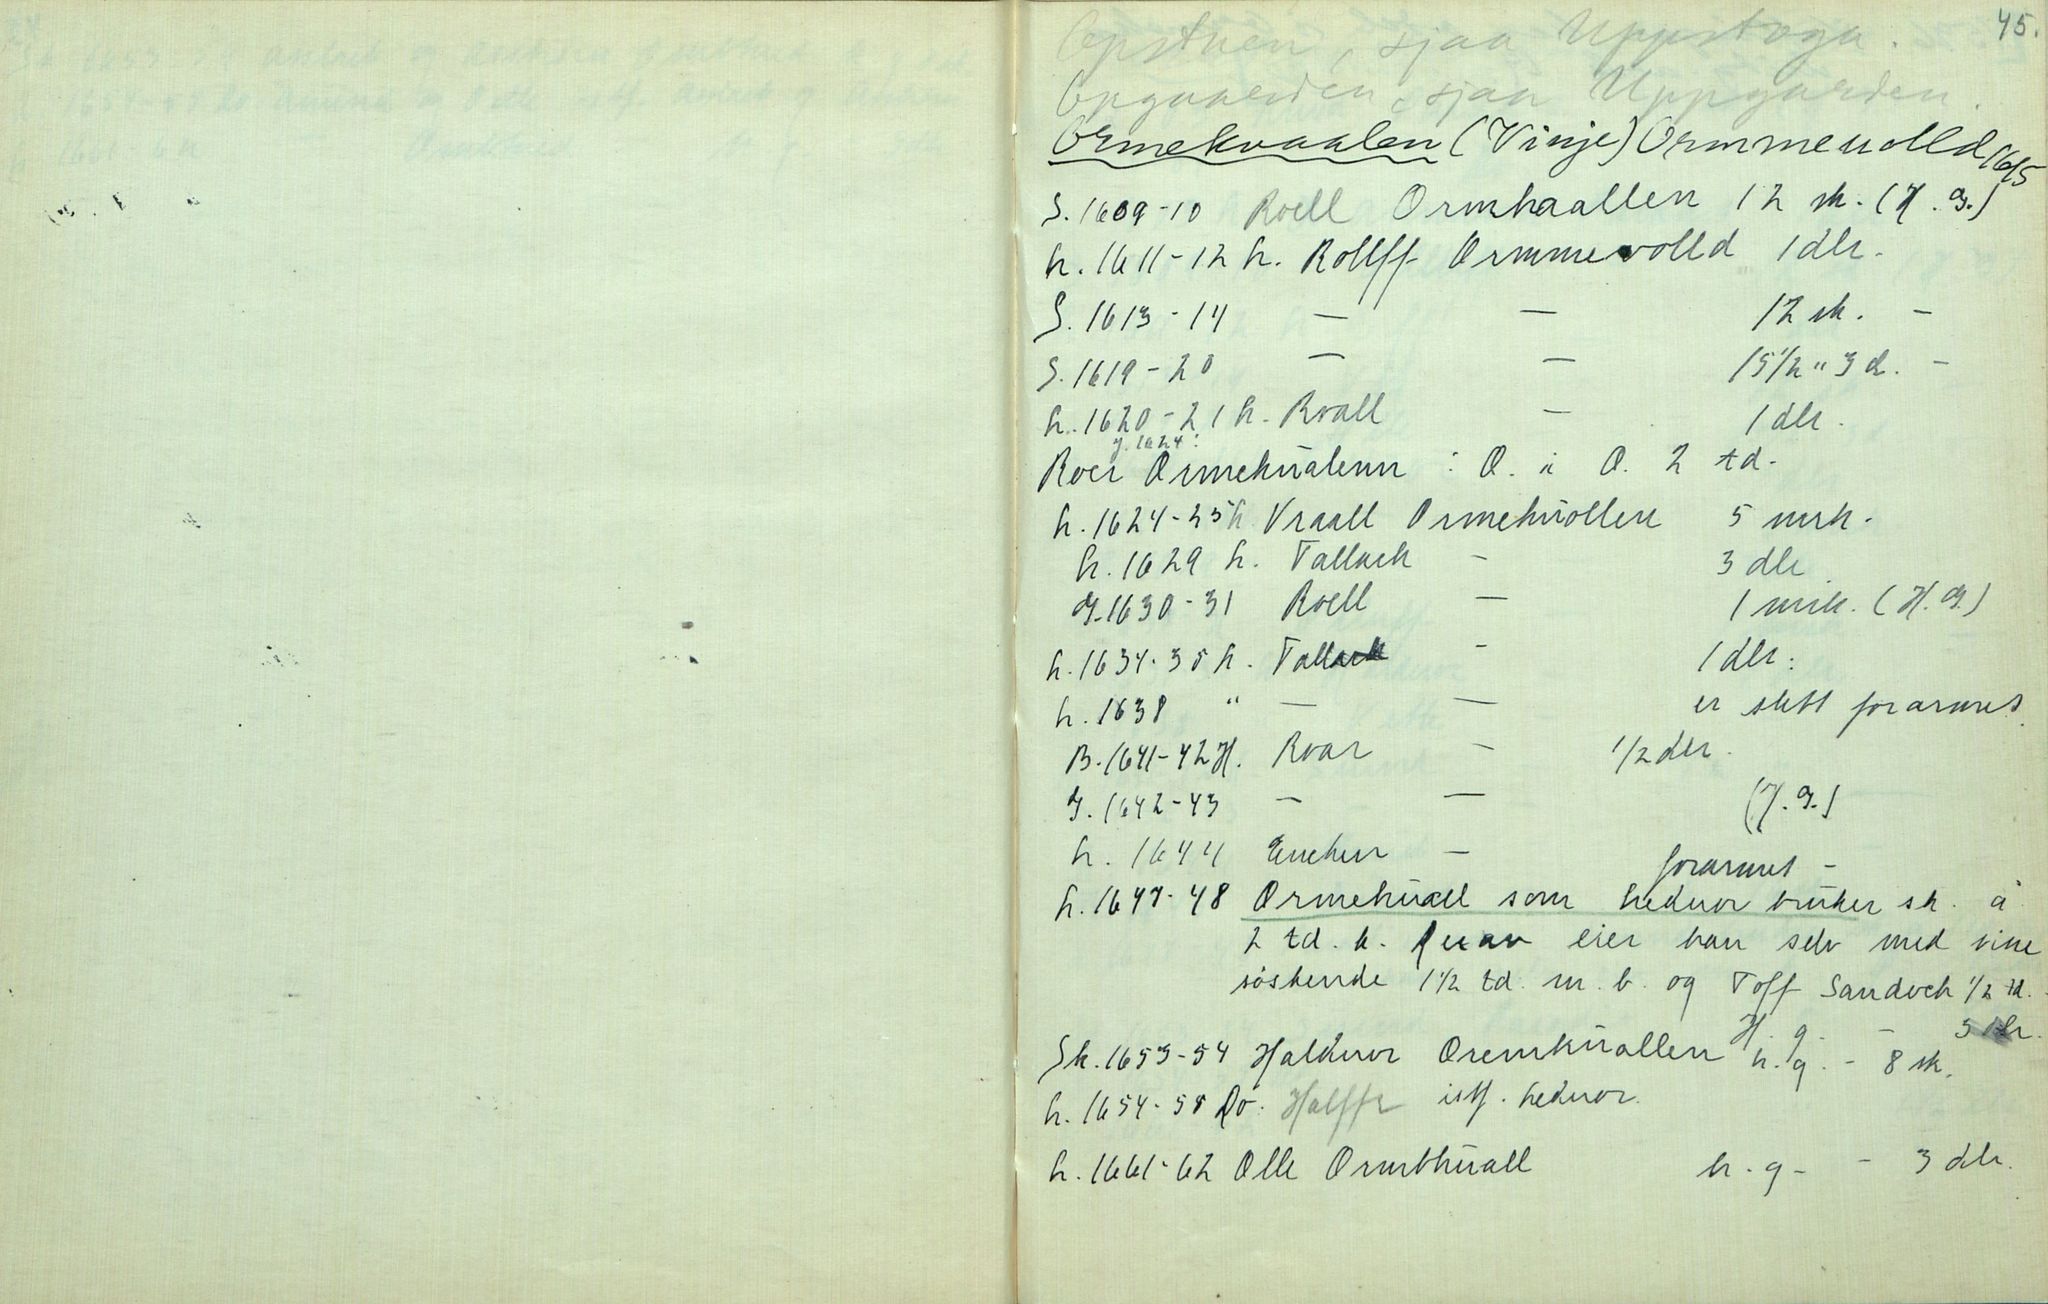 45.
Opstuen, sjaa Uppstoga.
Opgaarden, sjaa Uppgarden.
Ormekvaalen (Vinje) Ormmevolld 1615
S. 1609-10 Roell Ormhaallen 12 sk. (H. g.)
L. 1611-12 h. Rollff Ormmevolld 1 dlr.
S. 1613-14 — — 12 sk. —
S. 1619-20 — — 15 1/2 " 3 d. —
L. 1620-21 h. Roall — 1 dlr.
J. 1624:
Roer Ormekualenn : O. i O. 2 td.
L. 1624-25 h Vraall Ormekuollen 5 mrk.
L. 1629 h. Tallack - 3 dlr
G. 1630-31 Roell — 1 mrk. (H. g.)
L. 1634-35 h. Tallack - 1 dlr.
L. 1638 " — — er slett forarmet
B. 1641-42 H. Roar - 1/2 dlr.
G. 1642-43 — — (H. g.)
L. 1644 Enchen — forarmet -
L. 1647-48 Ormekuall som hednor bruker sk. a
2 td. k. huav eier han selv med sine
söskende 1 1/2 td. m. b. og Toff Sandock 1/2 td.
H. g. - 5
Sk. 1653-54 Haldnor Oremkuallen h. g. - 8 sk.
L. 1654-58 Do. istf. hednor.
L. 1661-62 Olle h. g. - - 3 dlr.